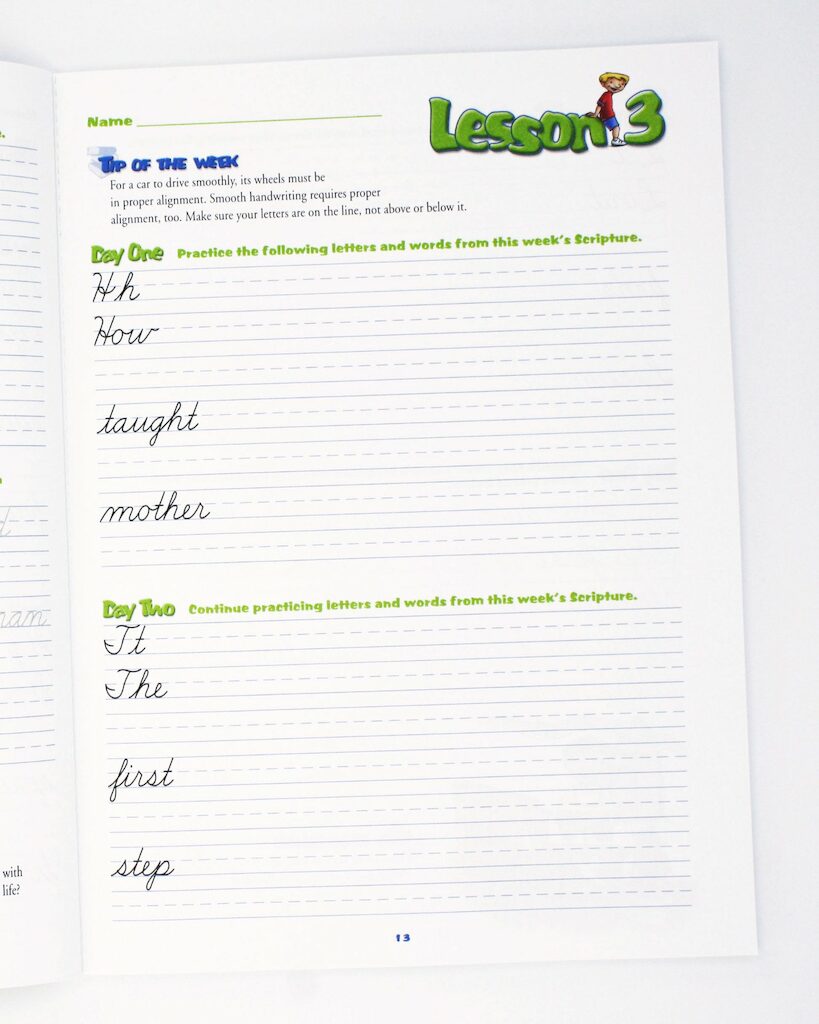 Name
Lesson 3
Tip of the Week
For a car to drive smoothly, its wheels must be
in proper alignment. Smooth handwriting requires proper
alignment, too. Make sure your letters are on the line, not above or below it.
Day One Practice the following letters and words from this week's Scripture.
Hh
How
taught
mother
Day Two Continue practicing letters and words from this week's Scripture.
Tt
The
first
step
with
life?
13